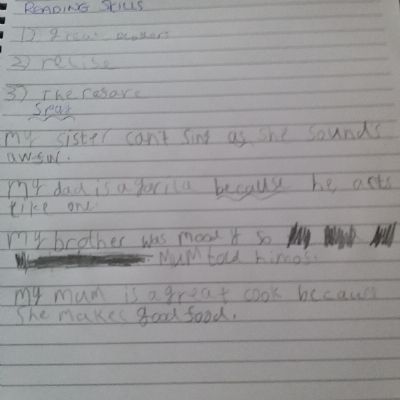 READING SKILLS
1)
2) relise
3) therefore
Spag
My sister can't sing as she sounds
awsw.
My dad is a gorila because he acts
like one.
My brother was moody so
Mum told him
My mum is a great cook because
she makes good food.